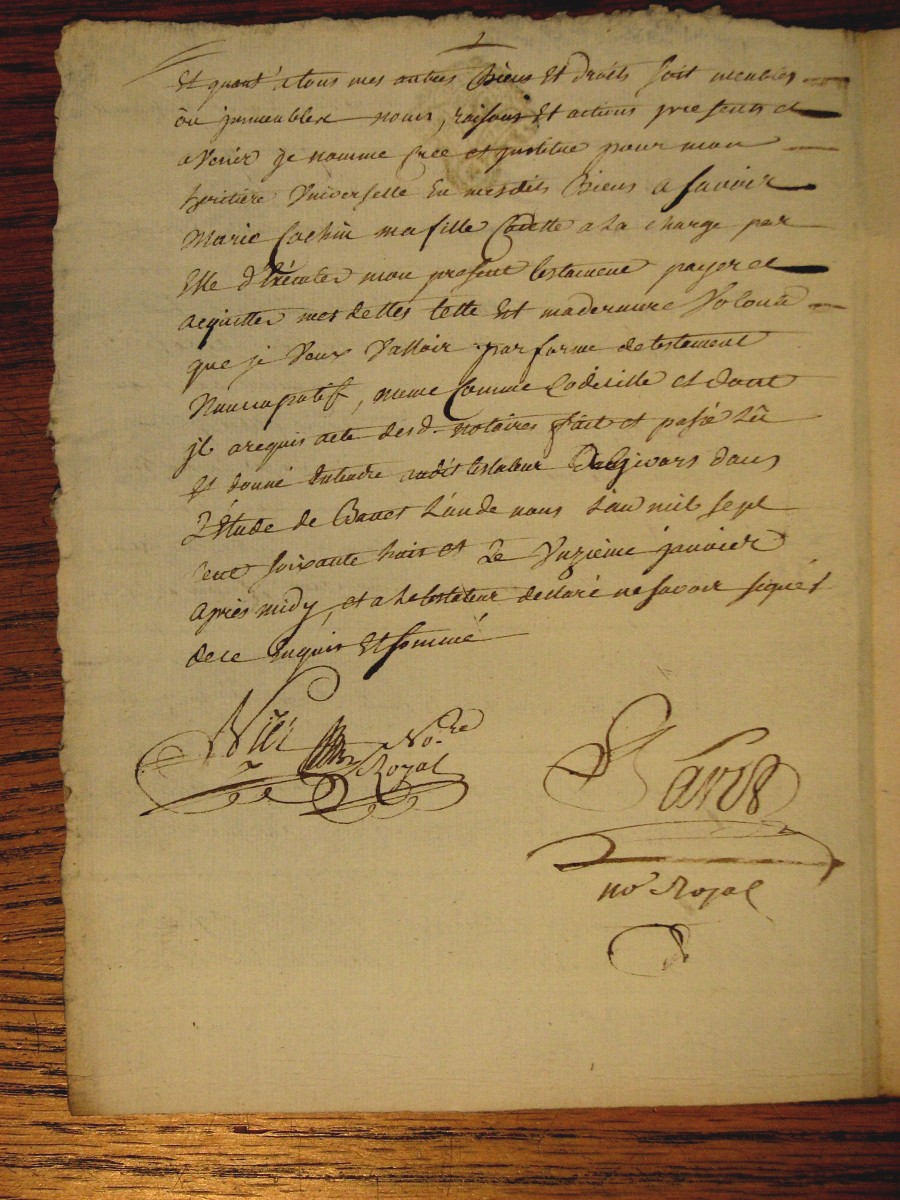 Et quant a tous mes autres Biens Et droits soit meubles
ou jmmeubles noms, raisons Et actions presents et
avenir je nomme Cree et jnstitue pour mon
heritière Universelle En mesdits Biens a savoir
Marie Cochin ma fille Cadette a la charge par
Elle d'Exécuter mon present testament payer et
acquitter mes dettes telle Est maderniere Volonté
que je Veux Valloir par forme detestament
Nuncupatif, meme Comme Codicille et dont
jl arequis acte desd. notaires fait et passé Lû
Et donné Entendre audit testateur a Givors dans
L'Etude de L'un de nous L'an mil sept
cent soixante huit et Le Unzieme janvier
après midy, et a le testateur declaré ne savoir signer
dece Enquis Et sommé
No.re
Royal
no.e Royal